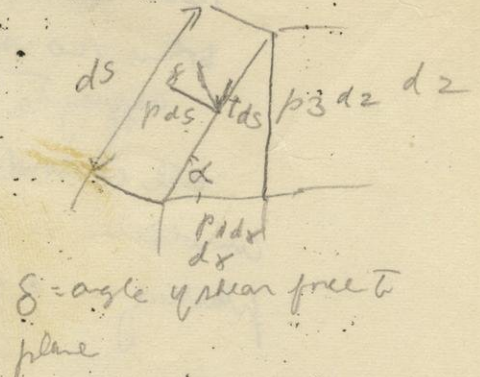 ds
δ
p ds
t ds
p3 dz
dz
α
p1 dx
dx
δ = angle of shear force to
plane